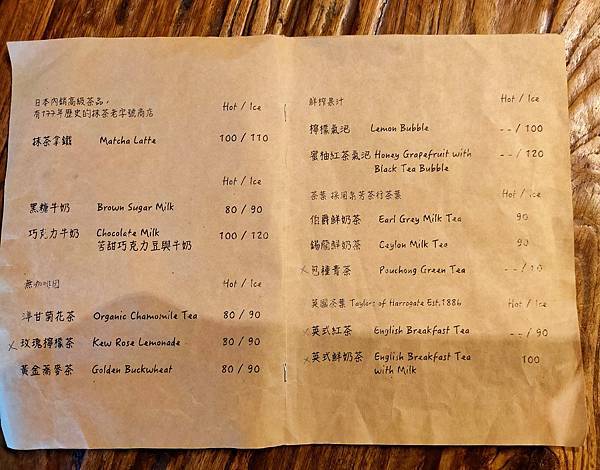 日本內銷高級茶品,
有177年歷史的抹茶老字號商店 Hot / Ice
抹茶拿鐵 Matcha Latte 100 / 110
Hot / Ice
黑糖牛奶 Brown Sugar Milk 80 / 90
巧克力牛奶 Chocolate Milk 100 / 120
苦甜巧克力豆與牛奶
無咖啡因 Hot / Ice
洋甘菊花茶 Organic Chamomile Tea 80 / 90
x 玫瑰檸檬茶 Kew Rose Lemonade 80 / 90
黃金蕎麥茶 Golden Buckwheat 80 / 90
鮮榨果汁 Hot / Ice
檸檬氣泡 Lemon Bubble -- / 100
蜜柚紅茶氣泡 Honey Grapefruit with -- / 120
Black Tea Bubble
茶葉 採用京芳茶行茶葉 Hot / Ice
伯爵鮮奶茶 Earl Grey Milk Tea 90
錫蘭鮮奶茶 Ceylon Milk Tea 90
x 包種青茶 Pouchong Green Tea -- /
英國茶葉 Taylors of Harrogate Est.1886 Hot / Ice
x 英式紅茶 English Breakfast Tea -- / 90
x 英式鮮奶茶 English Breakfast Tea 100
with Milk